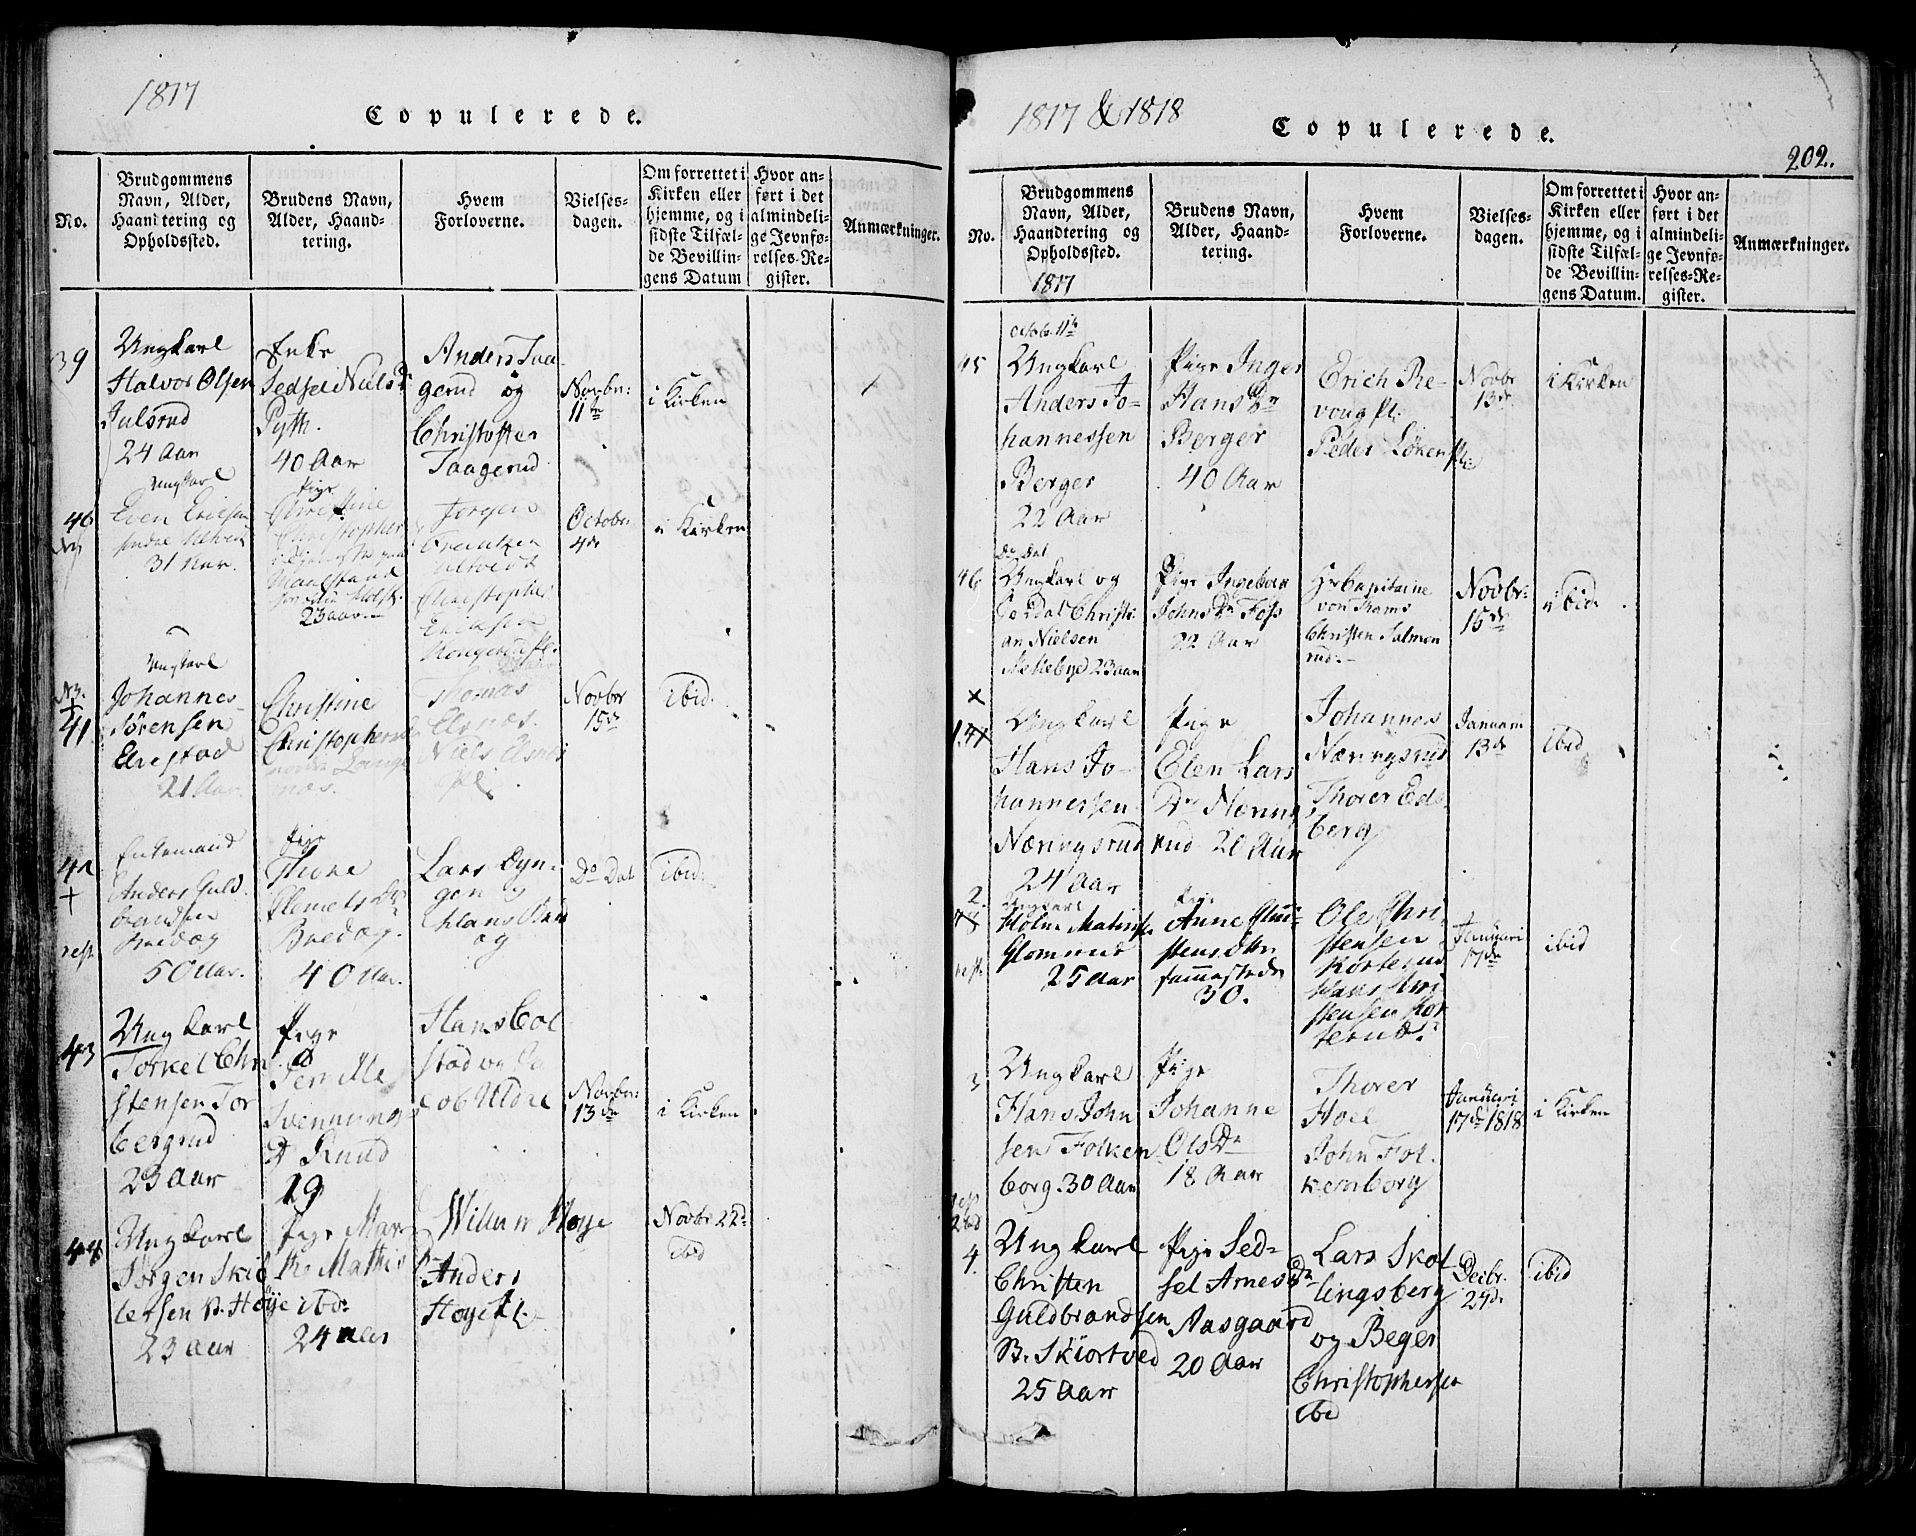 1817
Copulerede.
No.
Brudgommens
Navn, Alder,
Haandtering og
Opholdssted.
Brudens Navn,
Alder, Haand-
tering.
Hvem
Forloverne.
Vielses-
dagen.
Om forrettet i
Kirken eller
hjemme, og i
sidste Tilfæl-
de Bevillin-
gens Datum
Hvor an-
ført i det
almindeli-
ge Jevnfø-
relses-Re-
gister.
Anmærkninger.
39
Ungkarl
Halvor Olsen
Julsrud
24 Aar
Enke
Sedsel Niels Dr
Pyth.
40 Aar
Anders Taa-
gerud og
Christoffer
Taagerud
Novbr:
11te
i Kirken
40
Ungkarl
Even Ericsen
31 Aar.
Pige
Christine
Christopher
23 aar.
Jorgen
Christopher
Ericksen
Octobr:
4de
i Kirken
41
Ungkarl
Johannes
Sörensen
Enestad
21 Aar.
Christine
Christophersd
Thomas
Asnæs.
Niels Asnæs
Pl.
Novbr
15de
ibid.
42
Enkemand
Anders Guld-
brandsen
Bredag
50 Aar.
Pige
Thore
Klemets Dr
Bredag.
40 Aar.
Lars Dyn-
gen og
Hans
Do Dat
ibid.
43
Ungkarl
Torkel Chri
stensen Tor
bergrud
23 Aar
Pige
Pernille
Svennings
D Knud
19
Hans Col
stad og Ja
cob Uldre
Novbr:
13de
i Kirken
44
Ungkarl
Jörgen Skiö
lersen B. Höye
23 Aar
Pige Mar
the Mathis D
ibd:
24 Aar
Willum Höye
Anders
Höye Pl.
Novbr 22de
ibid
1817 & 1818
Copulerede.
202.
No.
Brudgommens
Navn, Alder,
Haandtering og
Opholdssted.
1817
Brudens Navn,
Alder, Haand-
tering.
Hvem
Forloverne.
Vielses-
dagen.
Om forrettet i
Kirken eller
hjemme, og i
sidste Tilfæl-
de Bevillin-
gens Datum.
Hvor an-
ført i det
almindeli-
ge Jevnfø-
relses-Re-
gister.
Anmærkninger.
45
Octob. 11te
Ungkarl
Anders Jo-
hannessen
Berger
22 Aar
Pige Inger
Hans Dr
Berger
40 Aar
Erich Re-
voug Pl:
Peder Löken Pl:
Novbr
13de
i Kirken
46
Do Dat
Ungkarl og
Soldat Christi-
an Nielsen
Melleby 23 aar
Pige Ingebor
Johns Dr Foss
22 Aar
Hr Capitaine
von Krams
Christen Salmon
rud.
Novbr:
15de
ibid.
1.
Ungkarl
Hans Jo-
hannessen
Næringsrud
24 Aar
Pige
Elen Lars
Dr Næring
rud 20 Aar
Johannes
Næringsrud
Thorer Eds
berg
Januari
13de
ibid
2.
Ungkarl
Holm
Glomerud
25 Aar
Pige
Anne
sammesteds
30.
Ole Chri-
stensen
Korterud
Hans Chri
stensen Kor
terud.
Januari
17de
ibid
3
Ungkarl
Hans John
sen Folken
borg. 30 Aar
Pige
Johanne
Ols Dr
18 Aar
Thorer
Hoel
John Fol-
kenborg
Januari
17de 1818
i Kirken
4.
Ungkarl
Christen
Guldbrandsen
B. Skiortved
25 Aar
Pige Sed-
sel Arnes Dr
Aasgaard
20 Aar
Lars Skol
lingsberg
og Beger
Christophersen
ibd
Decbr.
29de
ibid